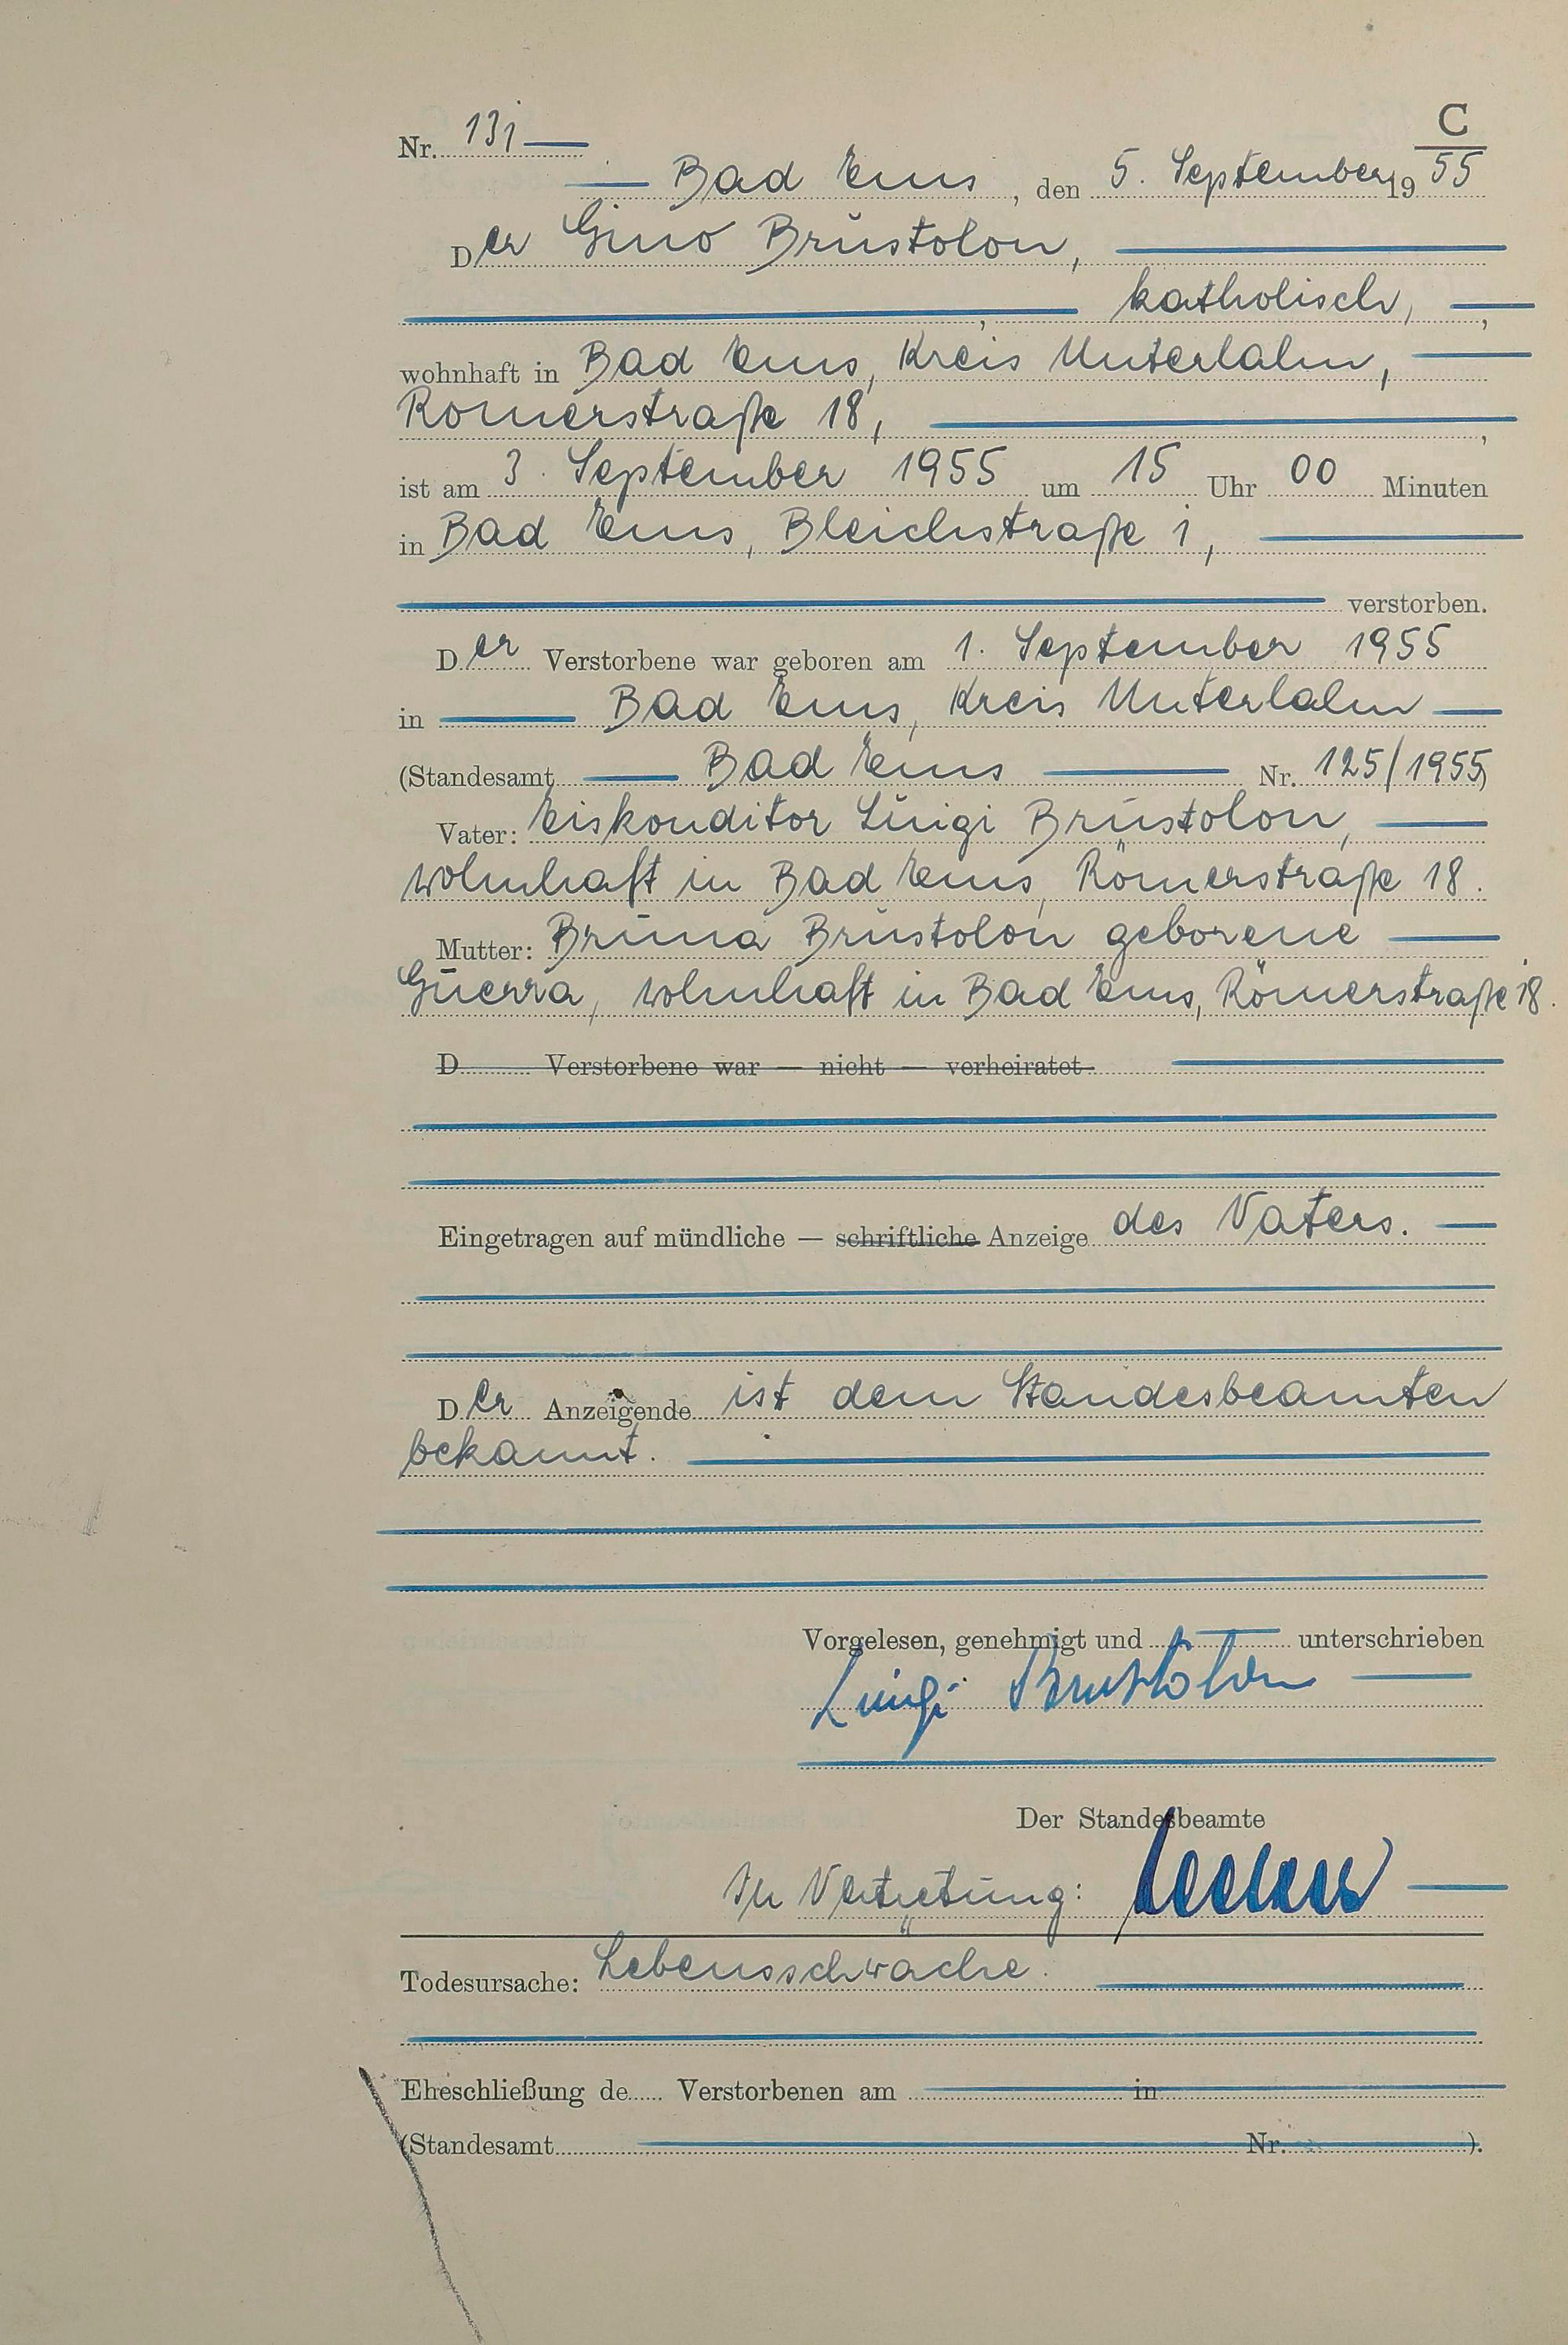 C
Nr. 131
Bad Ems, den 5. September 1955
Der Gino Brustolon,
, katholisch, ,
wohnhaft in Bad Ems, Kreis Unterlahn,
Römerstraße 18, ,
ist am 3. September 1955 um 15 Uhr 00 Minuten
in Bad Ems, Bleichstraße 1,
verstorben.
Der Verstorbene war geboren am 1. September 1955
in Bad Ems, Kreis Unterlahn
(Standesamt Bad Ems Nr. 125/1955)
Vater: Eiskonditor Luigi Brustolon,
wohnhaft in Bad Ems, Römerstraße 18.
Mutter: Bruna Brustolon geborene
Guerra, wohnhaft in Bad Ems, Römerstraße 18.
D Verstorbene war — nicht — verheiratet
Eingetragen auf mündliche — schriftliche Anzeige des Vaters.
Der Anzeigende ist dem Standesbeamten
bekannt.
Vorgelesen, genehmigt und unterschrieben
Luigi Brustolon
Der Standesbeamte
In Vertretung:
Todesursache: Lebensschwäche.
Eheschließung de Verstorbenen am in
(Standesamt Nr. ).